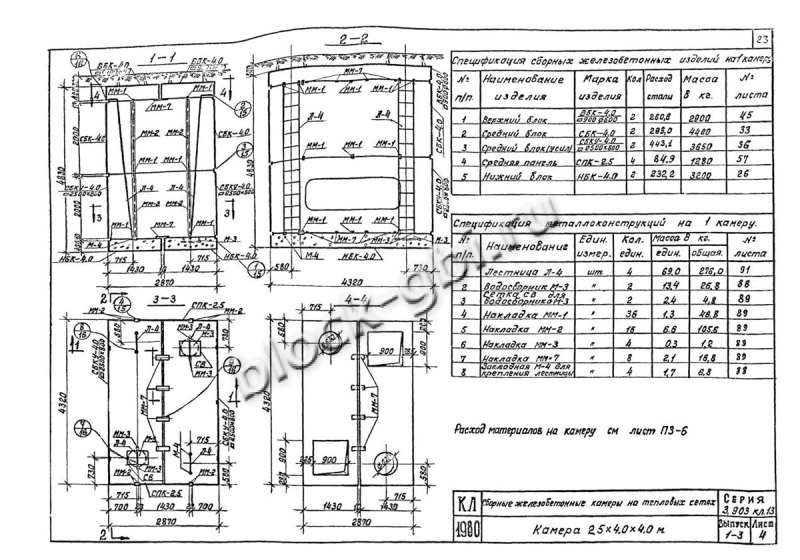 23
1-1
2-2
3-3
4-1
ВБК-4.0
ММ-1
ММ-7
ММ-2
Л-4
СБК-4.0
СБКУ-4.0
М-4
М-3
НБК-4.0
715
1430
2870
580
4320
730
4830
2000
СПК-2.5
ММ-3
СВ
700
900
Спецификация сборных железобетонных изделий на 1 камеру
№ п/п. Наименование изделия Марка изделия Кол Расход стали Масса в кг. № листа
1 Верхний блок ВБК-4.0 2 2800 45
2 Средний блок СБК-4.0 2 285,0 4400 33
3 Средний блок(усил) СБКУ-4.0 2 3650 36
4 Средняя панель СПК-2.5 4 84,9 1280 57
5 Нижний блок НБК-4.0 2 232,2 3200 26
Спецификация металлоконструкций на 1 камеру.
№ п/п. Наименование Един. измер. Кол. един. Масса в кг. един. общая. № листа
1 Лестница Л-4 шт 4 69,0 276,0 91
2 Водосборник М-3 " 2 13,4 26,8 86
3 Сетка СВ для водосборника М-3 " 2 2,4 4,8 89
4 Накладка ММ-1 " 36 1,3 46,8 89
5 Накладка ММ-2 " 16 6,6 105,6 89
6 Накладка ММ-3 " 4 0,3 1,2 89
7 Накладка ММ-7 " 8 2,1 16,8 89
8 Закладная М-4 для крепления лестницы " 4 1,7 6,8 88
Расход материалов на камеру см лист ПЗ-6
КЛ
1980
Сборные железобетонные камеры на тепловых сетях
Камера 2,5×4,0×4,0 м.
Серия
3.903 кл.13
Выпуск
1-3
Лист
4
block-gbi.ru